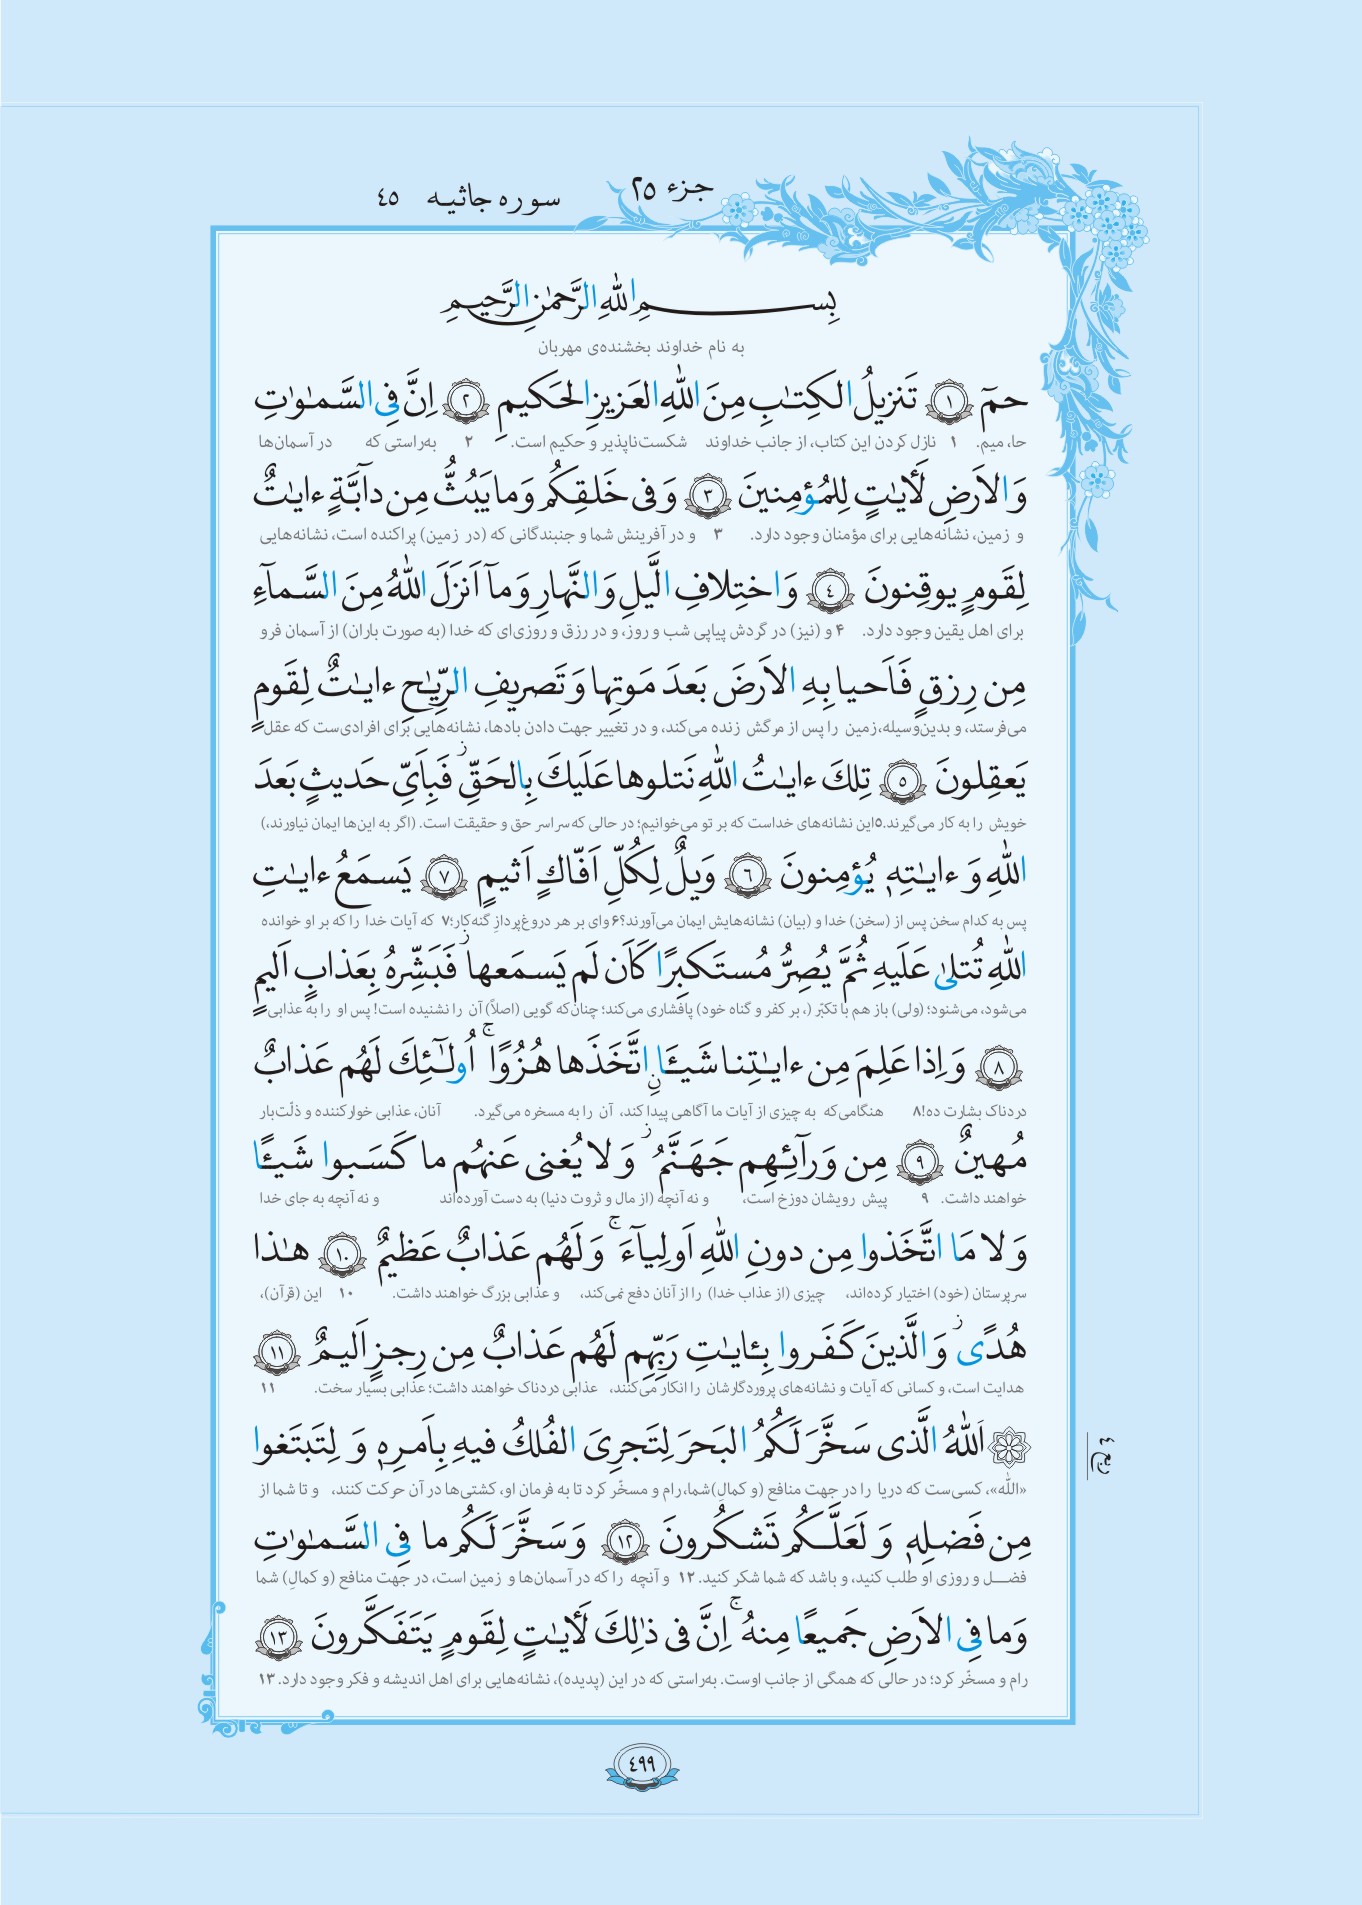 جزء ۲۵
سوره جاثیه ٤٥
بِسمِ اللّٰهِ الرَّحمٰنِ الرَّحيمِ
به نام خداوند بخشنده‌ی مهربان
حمٓ ﴿١﴾ تَنزيلُ الكِتـٰبِ مِنَ اللّٰهِ العَزيزِ الحَكيمِ ﴿٢﴾ اِنَّ فِى السَّمـٰوٰتِ
حا، میم. ۱ نازل کردن این کتاب، از جانب خداوند شکست‌ناپذیر و حکیم است. ۲ به‌راستی که در آسمان‌ها
وَالاَرضِ لَأٓيـٰتٍ لِلمُؤمِنينَ ﴿٣﴾ وَ فى خَلقِكُم وَما يَبُثُّ مِن دآبَّةٍ ءايـٰتٌ
و زمین، نشانه‌هایی برای مؤمنان وجود دارد. ۳ و در آفرینش شما و جنبندگانی که (در زمین) پراکنده است، نشانه‌هایی
لِقَومٍ يوقِنونَ ﴿٤﴾ وَاختِلافِ الَّيلِ وَالنَّهارِ وَمآ اَنزَلَ اللّٰهُ مِنَ السَّمآءِ
برای اهل یقین وجود دارد. ۴ و (نیز) در گردش پیاپی شب و روز، و در رزق و روزی‌ای که خدا (به صورت باران) از آسمان فرو
مِن رِزقٍ فَاَحيا بِهِ الاَرضَ بَعدَ مَوتِها وَ تَصريفِ الرِّيـٰحِ ءايـٰتٌ لِقَومٍ
می‌فرستد، و بدین‌وسیله،زمین را پس از مرگش زنده می‌کند، و در تغییر جهت دادن بادها، نشانه‌هایی برای افرادی‌ست که عقل
يَعقِلونَ ﴿٥﴾ تِلكَ ءايـٰتُ اللّٰهِ نَتلوها عَلَيكَ بِالحَقِّ ۖ فَبِاَىِّ حَديثٍ بَعدَ
خویش را به کار می‌گیرند.۵این نشانه‌های خداست که بر تو می‌خوانیم؛ در حالی که سراسر حق و حقیقت است. (اگر به این‌ها ایمان نیاورند،)
اللّٰهِ وَ ءايـٰتِهٖ يُؤمِنونَ ﴿٦﴾ وَيلٌ لِكُلِّ اَفّاكٍ اَثيمٍ ﴿٧﴾ يَسمَعُ ءايـٰتِ
پس به کدام سخن پس از (سخن) خدا و (بیان) نشانه‌هایش ایمان می‌آورند؟۶ وای بر هر دروغ‌پردازِ گنه‌کار؛۷ که آیات خدا را که بر او خوانده
اللّٰهِ تُتلىٰ عَلَيهِ ثُمَّ يُصِرُّ مُستَكبِرًا كَاَن لَم يَسمَعها ۖ فَبَشِّرهُ بِعَذابٍ اَليمٍ
می‌شود، می‌شنود؛ (ولی) باز هم با تکبّر (، بر کفر و گناه خود) پافشاری می‌کند؛ چنان‌که گویی (اصلاً) آن را نشنیده است! پس او را به عذابی
﴿٨﴾ وَ اِذا عَلِمَ مِن ءايـٰتِنا شَيـًٔا ۨاتَّخَذَها هُزُوًا ۚ اُولـٰٓئِكَ لَهُم عَذابٌ
دردناک بشارت ده!۸ هنگامی‌که به چیزی از آیات ما آگاهی پیدا کند، آن را به مسخره می‌گیرد. آنان، عذابی خوارکننده و ذلّت‌بار
مُهينٌ ﴿٩﴾ مِن وَرآئِهِم جَهَنَّمُ ۖ وَ لا يُغنى عَنهُم ما كَسَبوا شَيـًٔا
خواهند داشت. ۹ پیش رویشان دوزخ است، و نه آنچه (از مال و ثروت دنیا) به دست آورده‌اند و نه آنچه به جای خدا
وَ لا مَا اتَّخَذوا مِن دونِ اللّٰهِ اَولِيآءَ ۚ وَ لَهُم عَذابٌ عَظيمٌ ﴿١٠﴾ هـٰذا
سرپرستان (خود) اختیار کرده‌اند، چیزی (از عذاب خدا) را از آنان دفع نمی‌کند، و عذابی بزرگ خواهند داشت. ۱۰ این (قرآن)،
هُدًى ۖ وَالَّذينَ كَفَروا بِـٔايـٰتِ رَبِّهِم لَهُم عَذابٌ مِن رِجزٍ اَليمٌ ﴿١١﴾
هدایت است، و کسانی که آیات و نشانه‌های پروردگارشان را انکار می‌کنند، عذابی دردناک خواهند داشت؛ عذابی بسیار سخت. ۱۱
۞ اَللّٰهُ الَّذى سَخَّرَ لَكُمُ البَحرَ لِتَجرِىَ الفُلكُ فيهِ بِاَمرِهٖ وَ لِتَبتَغوا
ربع ٤
«اللّٰه»، کسی‌ست که دریا را در جهت منافع (و کمالِ)شما، رام و مسخّر کرد تا به فرمان او، کشتی‌ها در آن حرکت کنند، و تا شما از
مِن فَضلِهٖ وَ لَعَلَّكُم تَشكُرونَ ﴿١٢﴾ وَ سَخَّرَ لَكُم ما فِى السَّمـٰوٰتِ
فضل و روزی او طلب کنید، و باشد که شما شکر کنید. ۱۲ و آنچه را که در آسمان‌ها و زمین است، در جهت منافع (و کمالِ) شما
وَما فِى الاَرضِ جَميعًا مِنهُ ۚ اِنَّ فى ذٰلِكَ لَأٓيـٰتٍ لِقَومٍ يَتَفَكَّرونَ ﴿١٣﴾
رام و مسخّر کرد؛ در حالی که همگی از جانب اوست. به‌راستی که در این (پدیده)، نشانه‌هایی برای اهل اندیشه و فکر وجود دارد. ۱۳
٤٩٩